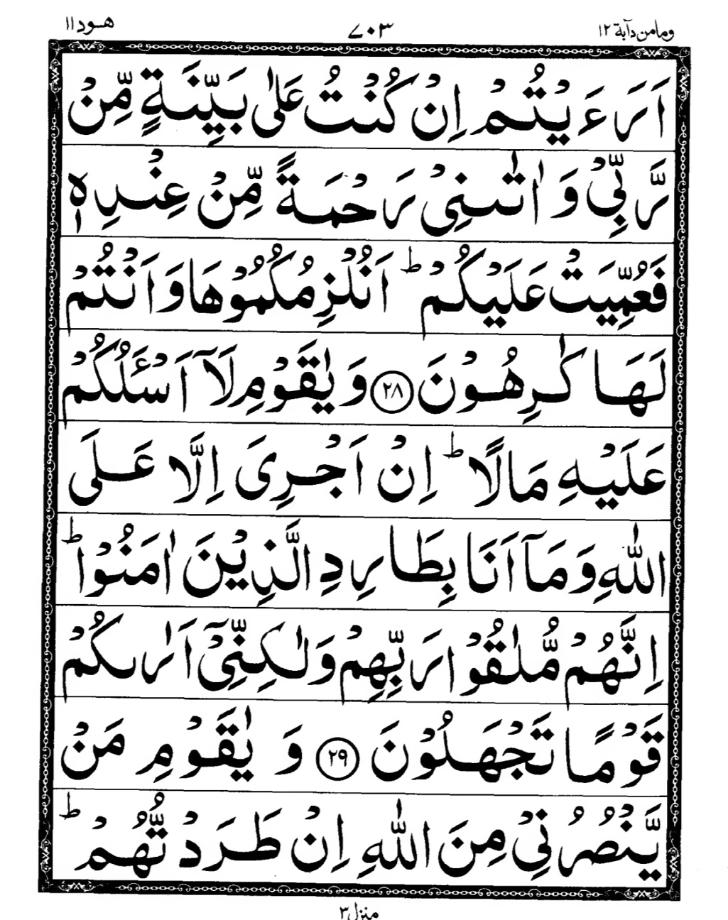 ومامن دآبة ١٢ ٧٠٣ هود ١١
اَرَءَيْتُمْ اِنْ كُنْتُ عَلٰى بَيِّنَةٍ مِّنْ
رَّبِّيْ وَ اٰتٰىنِيْ رَحْمَةً مِّنْ عِنْدِهٖ
فَعُمِّيَتْ عَلَيْكُمْ ؕ اَنُلْزِمُكُمُوْهَا وَ اَنْتُمْ
لَهَا كٰرِهُوْنَ ﴿۲۸﴾ وَ يٰقَوْمِ لَاۤ اَسْـَٔلُكُمْ
عَلَيْهِ مَالًا ؕ اِنْ اَجْرِيَ اِلَّا عَلَى
اللّٰهِ وَ مَاۤ اَنَا بِطَارِدِ الَّذِيْنَ اٰمَنُوْا ؕ
اِنَّهُمْ مُّلٰقُوْا رَبِّهِمْ وَ لٰكِنِّيْۤ اَرٰىكُمْ
قَوْمًا تَجْهَلُوْنَ ﴿۲۹﴾ وَ يٰقَوْمِ مَنْ
يَّنْصُرُنِيْ مِنَ اللّٰهِ اِنْ طَرَدْتُّهُمْ ؕ
منزل ٣